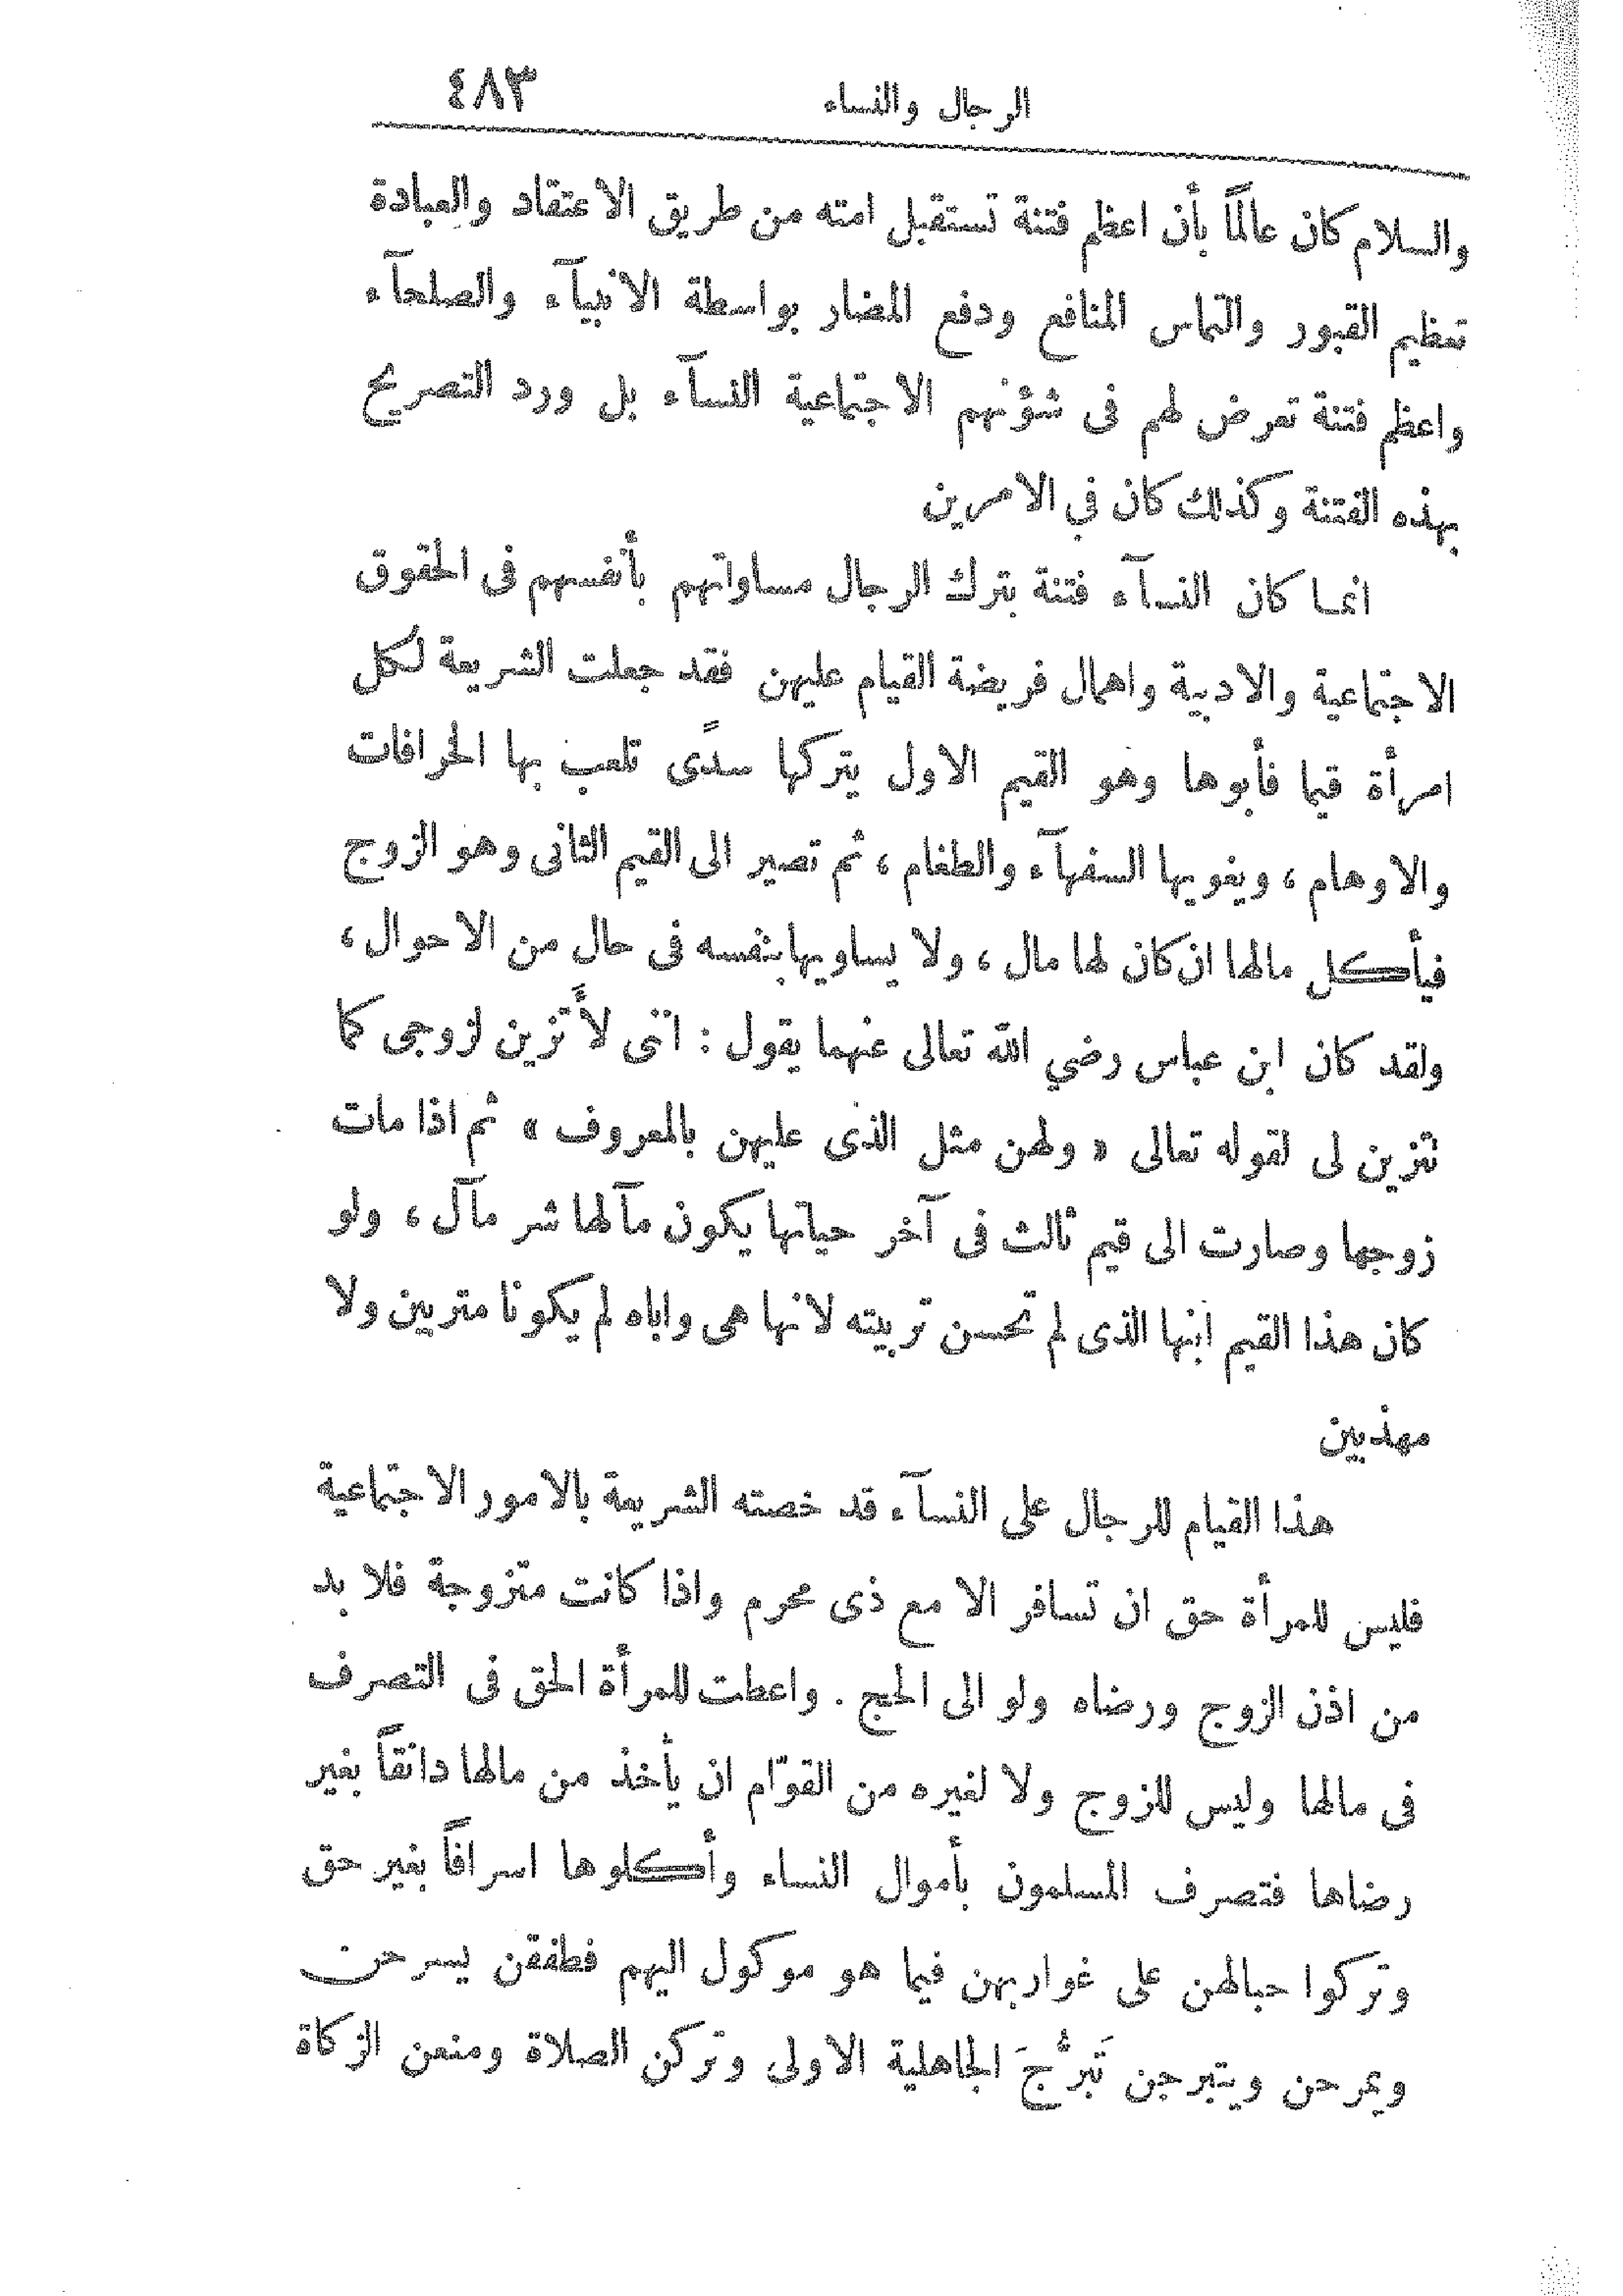 الرجال والنساء ٤٨٣
والسلام كان عالمًا بأن اعظم فتنة تستقبل امته من طريق الاعتقاد والعبادة
تعظيم القبور والتماس المنافع ودفع المضار بواسطة الانبيآء والصلحآء
واعظم فتنة تعرض لهم فى شؤنهم الاجتماعية النسآء بل ورد التصريح
بهذه الفتنة وكذلك كان في الامرين
انما كان النسآء فتنة بترك الرجال مساواتهم بأنفسهم فى الحقوق
الاجتماعية والادبية واهمال فريضة القيام عليهن فقد جعلت الشريعة لكل
امرأة قيما فأبوها وهو القيم الاول يتركها سدًى تلعب بها الخرافات
والاوهام ، ويغويها السفهآء والطغام ، ثم تصير الى القيم الثانى وهو الزوج
فيأكل مالها ان كان لها مال ، ولا يساويها بنفسه فى حال من الاحوال ،
ولقد كان ابن عباس رضي الله تعالى عنهما يقول : اننى لأتزين لزوجى كما
تتزين لى لقوله تعالى « ولهن مثل الذى عليهن بالمعروف » ثم اذا مات
زوجها وصارت الى قيم ثالث فى آخر حياتها يكون مآلها شر مآل ، ولو
كان هذا القيم ابنها الذى لم تحسن تربيته لانها هى واباه لم يكونا متربيين ولا
مهذبين
هذا القيام للرجال على النسآء قد خصته الشريعة بالامور الاجتماعية
فليس للمرأة حق ان تسافر الا مع ذى محرم واذا كانت متزوجة فلا بد
من اذن الزوج ورضاه ولو الى الحج . واعطت للمرأة الحق فى التصرف
فى مالها وليس للزوج ولا لغيره من القوّام ان يأخذ من مالها دانقاً بغير
رضاها فتصرف المسلمون بأموال النساء وأكلوها اسرافاً بغير حق
وتركوا حبالهن على غواربهن فيما هو موكول اليهم فطفقن يسرحن
ويمرحن ويتبرجن تَبرُّجَ الجاهلية الاولى وتركن الصلاة ومنعن الزكاة